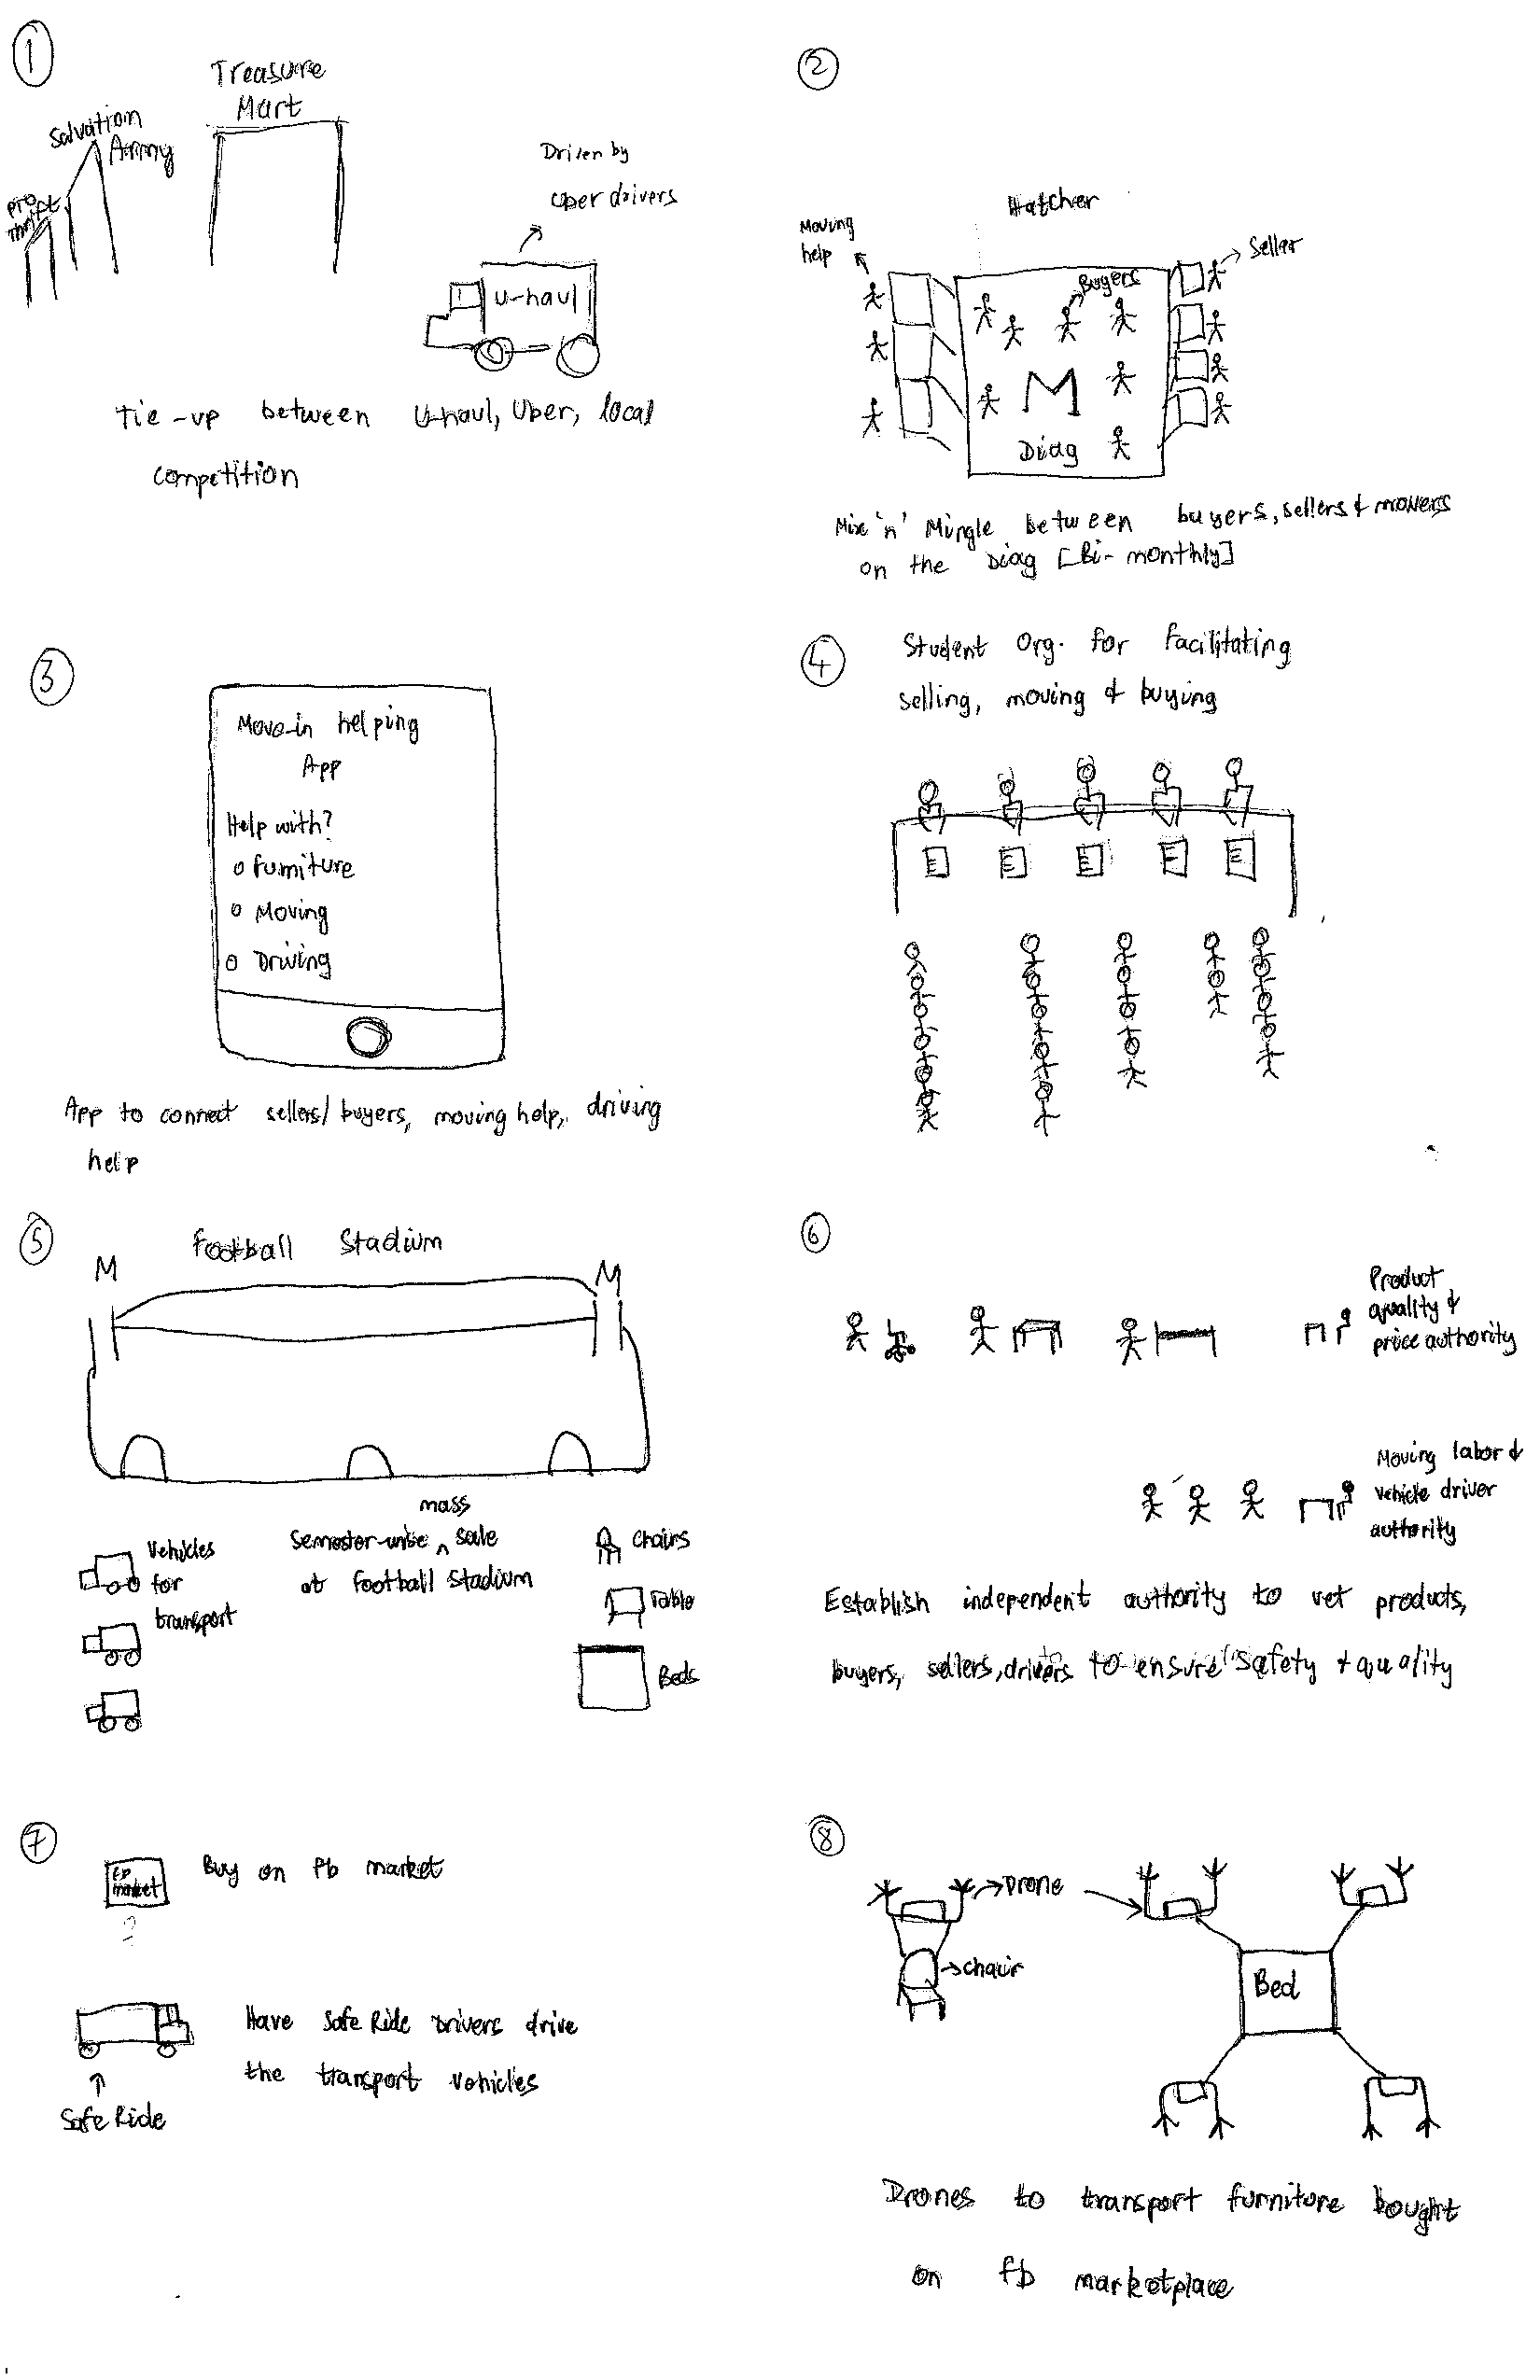 1
Treasure
Mart
Salvation
Army
PTO
Thrift
Driven by
Uber drivers
U-haul
Tie-up between U-haul, Uber, local
competition
2
Hatcher
Moving
help
Seller
Buyers
M
Diag
Mix 'n' Mingle between buyers, sellers & movers
on the Diag [Bi-monthly]
3
Move-in helping
App
Help with?
o Furniture
o Moving
o Driving
App to connect sellers/buyers, moving help, driving
help
4
Student Org. for Facilitating
selling, moving & buying
5
Football Stadium
M M
Vehicles
for
transport
mass
Semester-wise ^ sale
at Football Stadium
Chairs
Table
Beds
6
Product
quality &
price authority
Moving labor &
vehicle driver
authority
Establish independent authority to vet products,
buyers, sellers, drivers to ensure safety & quality
7
market
Buy on Fb market
Have Safe Ride Drivers drive
the transport vehicles
Safe Ride
8
Drone
chair
Bed
Drones to transport furniture bought
on fb marketplace